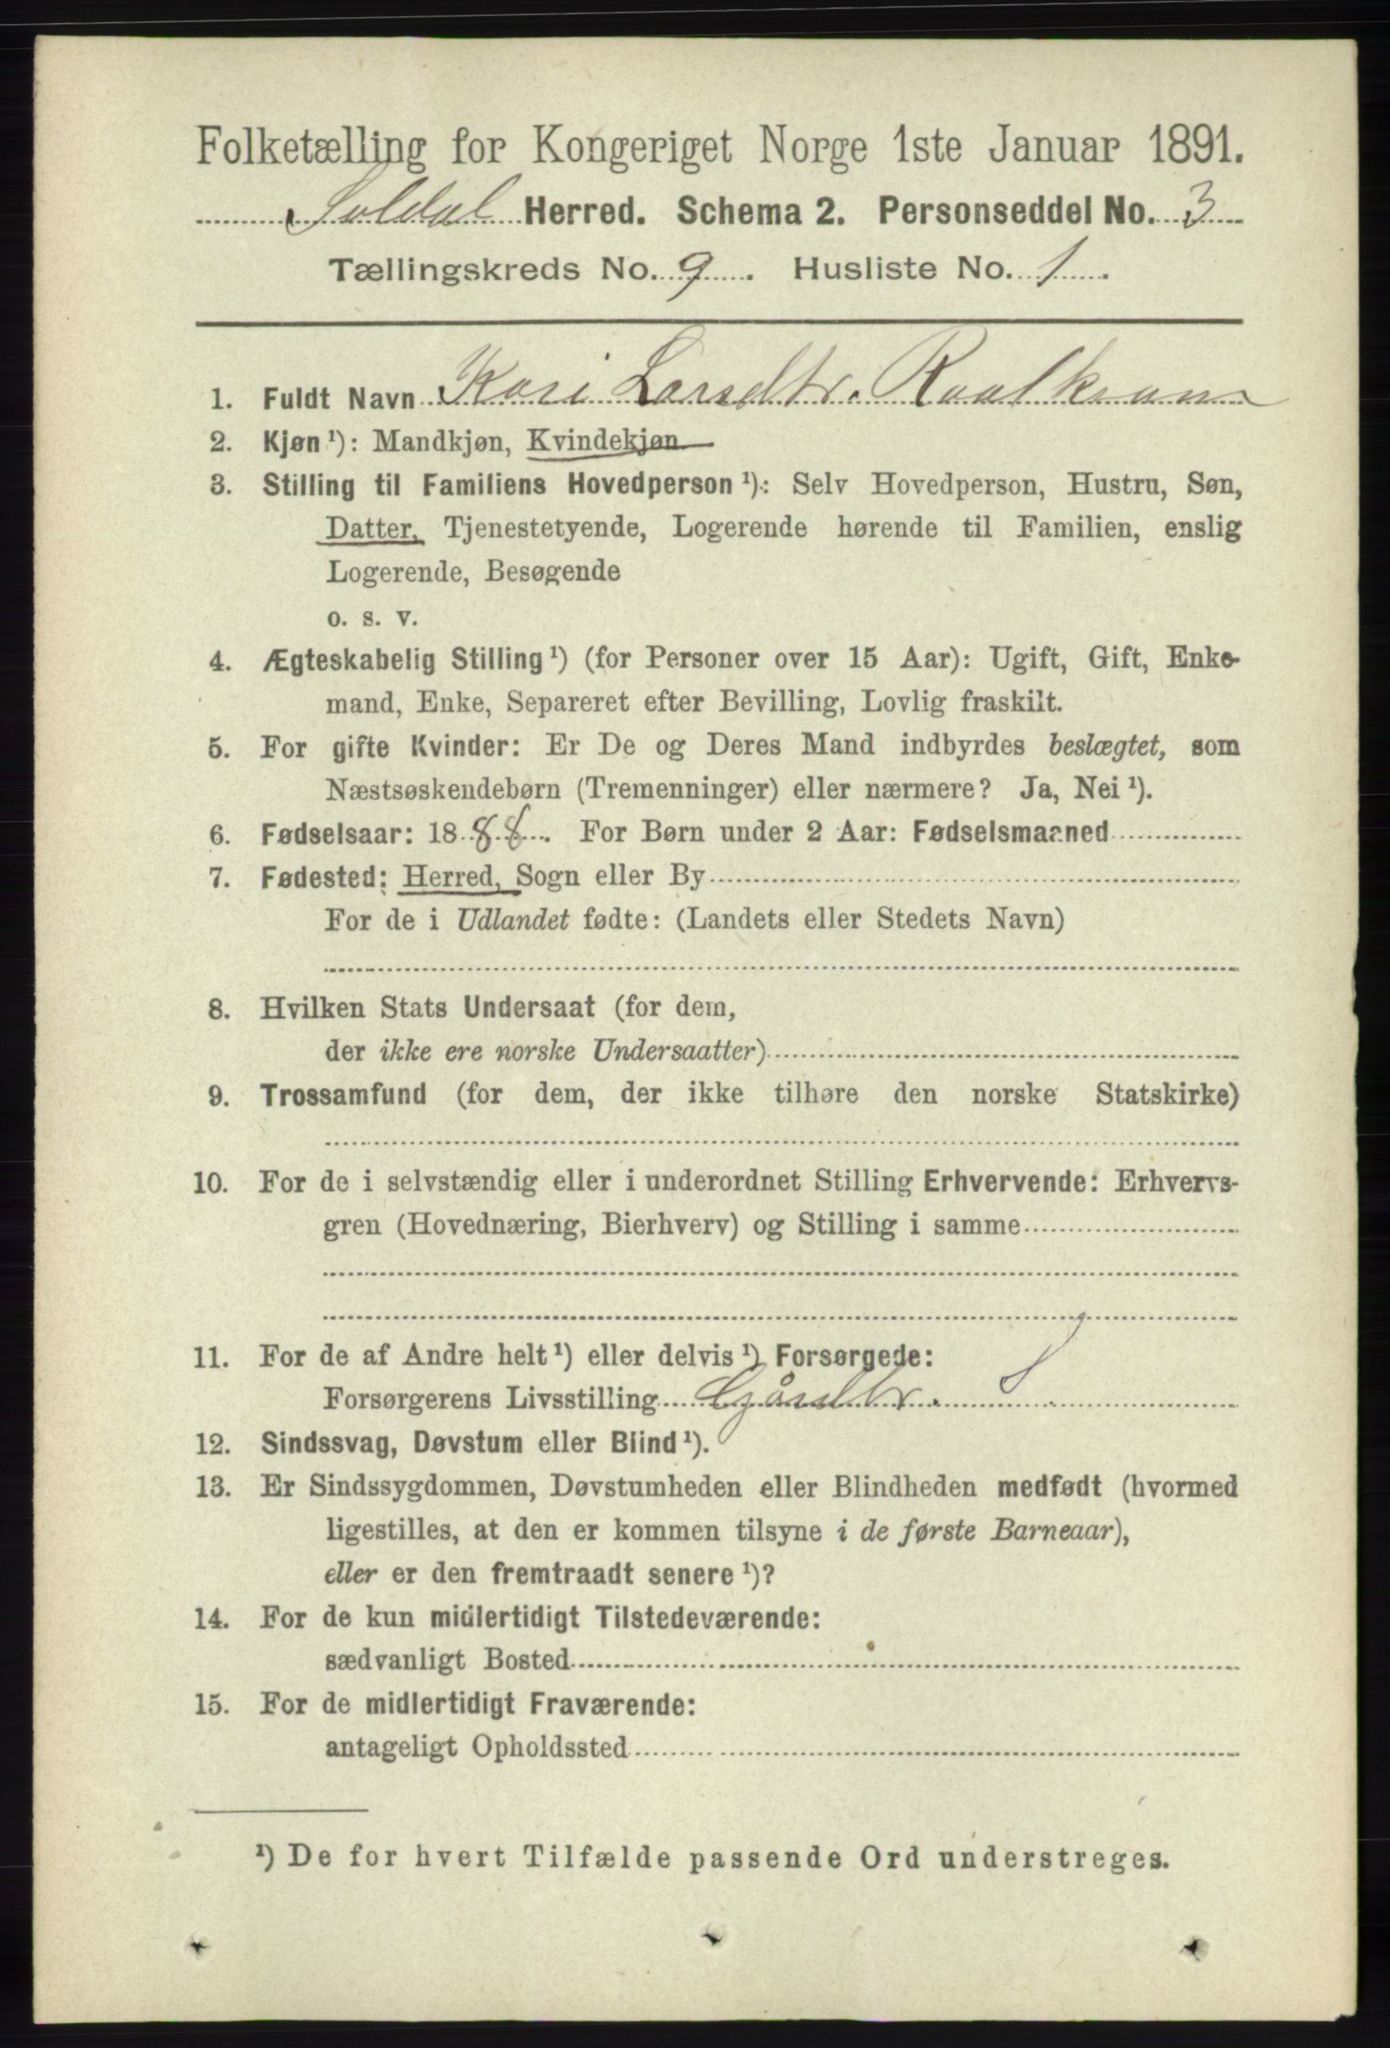 Folketælling for Kongeriget Norge 1ste Januar 1891.
Suldal Herred. Schema 2. Personseddel No. 3
Tællingskreds No. 9. Husliste No. 1.
1. Fuldt Navn Kari Larsdtr. Roalkvam
2. Kjøn ¹): Mandkjøn, Kvindekjøn
3. Stilling til Familiens Hovedperson ¹): Selv Hovedperson, Hustru, Søn,
Datter, Tjenestetyende, Logerende hørende til Familien, enslig
Logerende, Besøgende
o. s. v.
4. Ægteskabelig Stilling ¹) (for Personer over 15 Aar): Ugift, Gift, Enke-
mand, Enke, Separeret efter Bevilling, Lovlig fraskilt.
5. For gifte Kvinder: Er De og Deres Mand indbyrdes beslægtet, som
Næstsøskendebørn (Tremenninger) eller nærmere? Ja, Nei ¹).
6. Fødselsaar: 1888. For Børn under 2 Aar: Fødselsmaaned
7. Fødested: Herred, Sogn eller By
For de i Udlandet fødte: (Landets eller Stedets Navn)
8. Hvilken Stats Undersaat (for dem,
der ikke ere norske Undersaatter)
9. Trossamfund (for dem, der ikke tilhøre den norske Statskirke)
10. For de i selvstændig eller i underordnet Stilling Erhvervende: Erhvervs-
gren (Hovednæring, Bierhverv) og Stilling i samme
11. For de af Andre helt ¹) eller delvis ¹) Forsørgede:
Forsørgerens Livsstilling Gårdbr.
12. Sindssvag, Døvstum eller Blind ¹).
13. Er Sindssygdommen, Døvstumheden eller Blindheden medfødt (hvormed
ligestilles, at den er kommen tilsyne i de første Barneaar),
eller er den fremtraadt senere ¹)?
14. For de kun midlertidigt Tilstedeværende:
sædvanligt Bosted
15. For de midlertidigt Fraværende:
antageligt Opholdssted
¹) De for hvert Tilfælde passende Ord understreges.